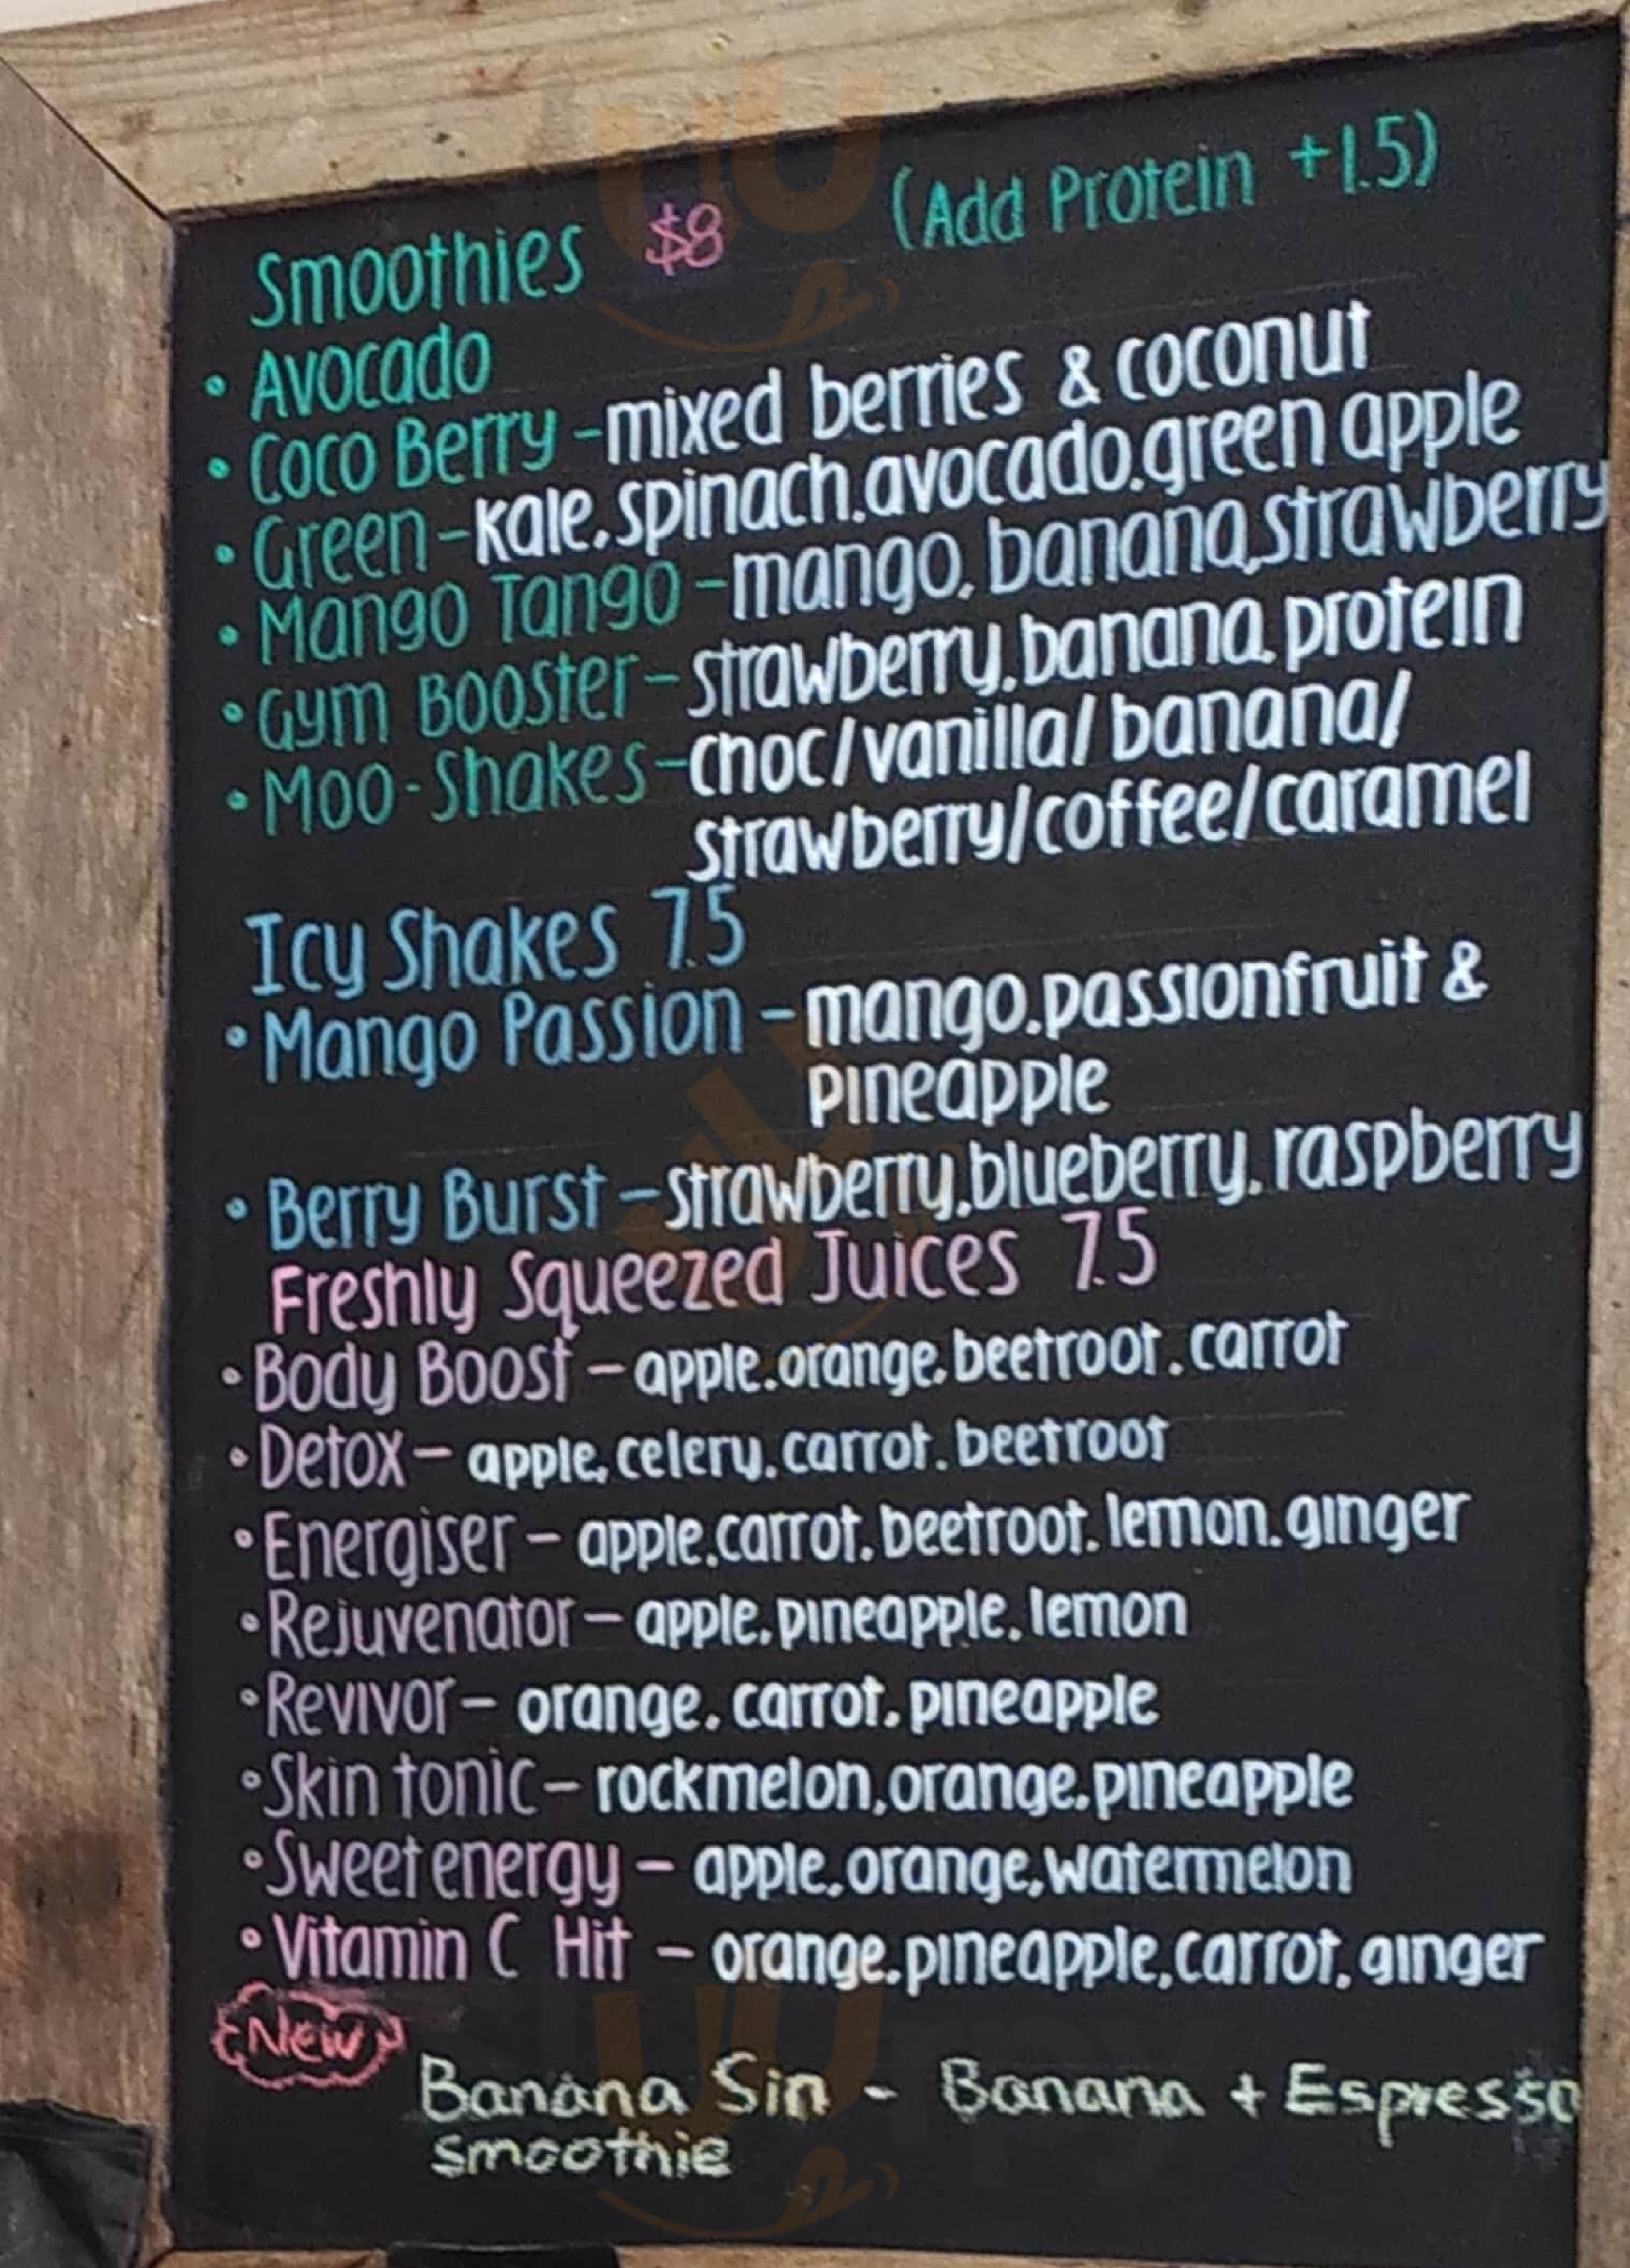 Smoothies $8 (Add Protein +1.5)
• Avocado
• Coco Berry - mixed berries & coconut
• Green - kale, spinach, avocado, green apple
• Mango Tango - mango, banana, strawberry
• Gym Booster - strawberry, banana, protein
• Moo-Shakes - choc/vanilla/banana/
strawberry/coffee/caramel
Icy Shakes 7.5
• Mango Passion - mango, passionfruit &
pineapple
• Berry Burst - strawberry, blueberry, raspberry
Freshly Squeezed Juices 7.5
• Body Boost - apple, orange, beetroot, carrot
• Detox - apple, celery, carrot, beetroot
• Energiser - apple, carrot, beetroot, lemon, ginger
• Rejuvenator - apple, pineapple, lemon
• Revivor - orange, carrot, pineapple
• Skin tonic - rockmelon, orange, pineapple
• Sweet energy - apple, orange, watermelon
• Vitamin C Hit - orange, pineapple, carrot, ginger
New
Banana Sin - Banana + Espresso
smoothie